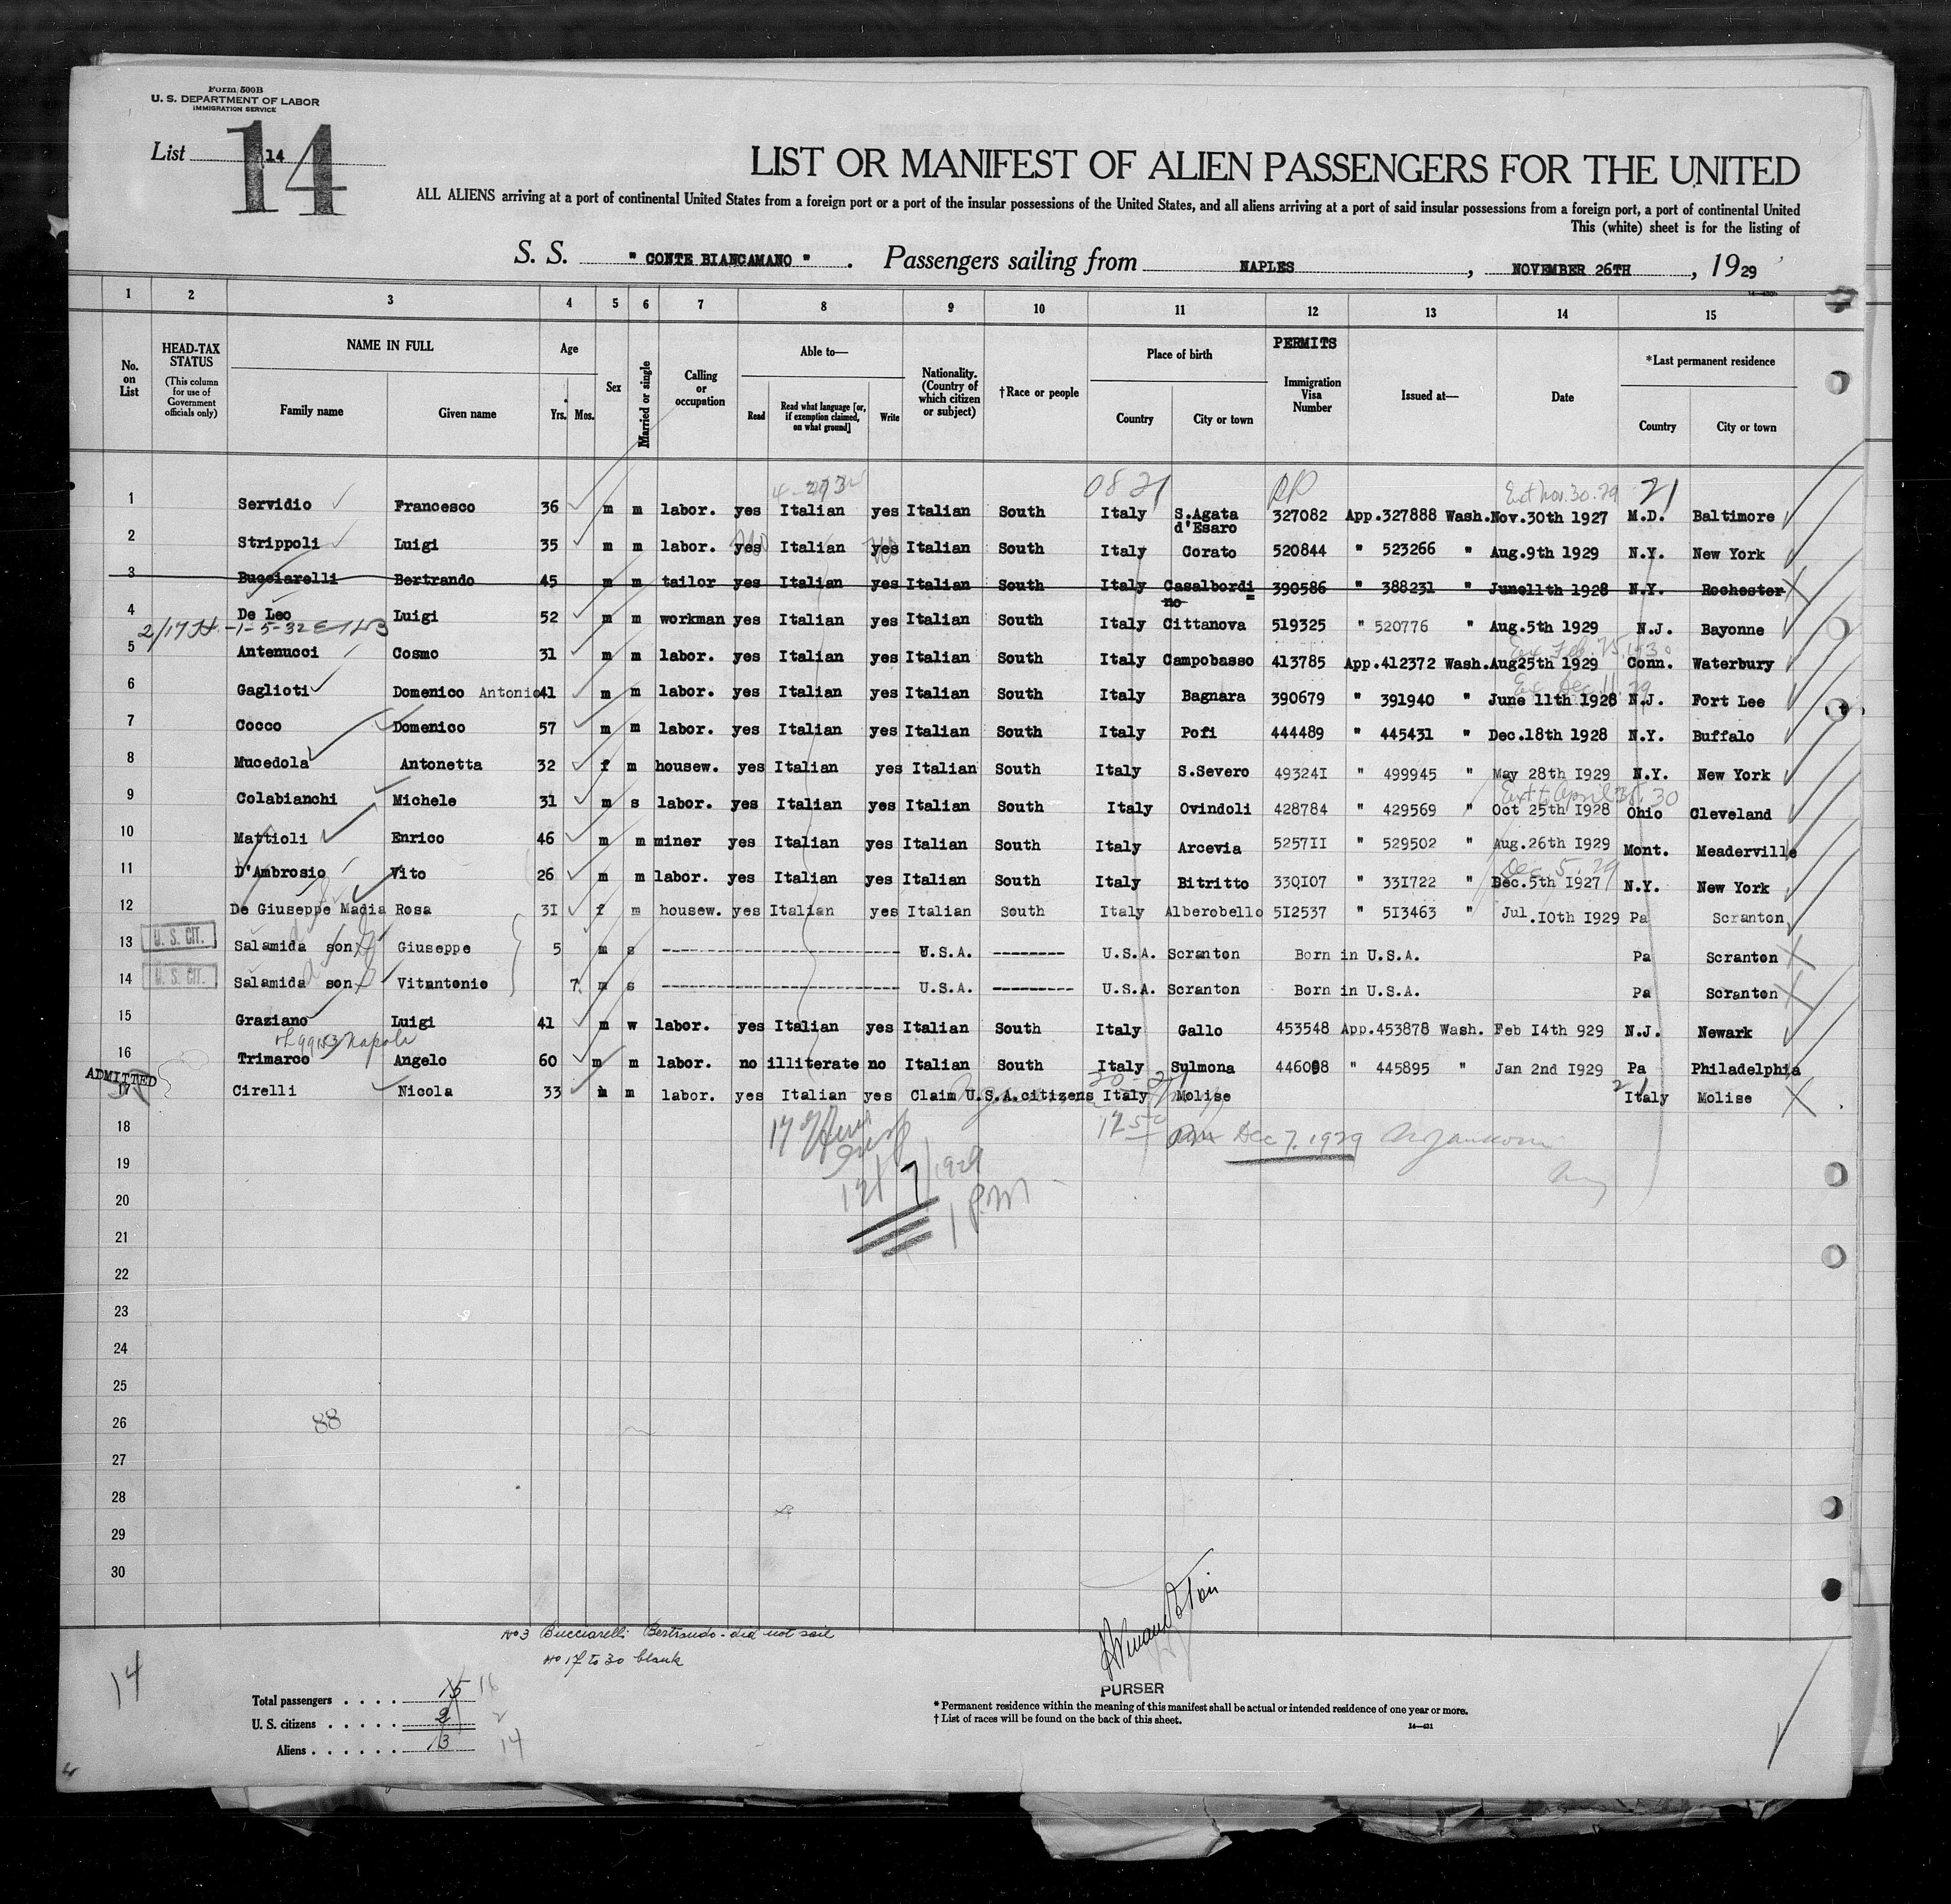 Form 500B
U. S. DEPARTMENT OF LABOR
IMMIGRATION SERVICE
List 14
14
LIST OR MANIFEST OF ALIEN PASSENGERS FOR THE UNITED
ALL ALIENS arriving at a port of continental United States from a foreign port or a port of the insular possessions of the United States, and all aliens arriving at a port of said insular possessions from a foreign port, a port of continental United
This (white) sheet is for the listing of
S. S. " CONTE BIANCAMANO " . Passengers sailing from NAPLES , NOVEMBER 26TH , 1929
1 2 3 4 5 6 7 8 9 10 11 12 13 14 15
No. on List
HEAD-TAX STATUS (This column for use of Government officials only)
NAME IN FULL Family name Given name
Age Yrs. Mos.
Sex
Married or single
Calling or occupation
Able to— Read Read what language [or, if exemption claimed, on what ground] Write
Nationality. (Country of which citizen or subject)
†Race or people
Place of birth Country City or town
PERMITS
Immigration Visa Number
Issued at—
Date
*Last permanent residence Country City or town
08 21 Ext Nov. 30. 29 21
1 Servidio Francesco 36 m m labor. yes Italian yes Italian South Italy S.Agata d'Esaro 327082 App.327888 Wash. Nov.30th 1927 M.D. Baltimore
2 Strippoli Luigi 35 m m labor. yes Italian yes Italian South Italy Corato 520844 " 523266 " Aug.9th 1929 N.Y. New York
3 Bucciarelli Bertrando 45 m m tailor yes Italian yes Italian South Italy Casalbordi=no 390586 " 388231 " June11th 1928 N.Y. Rochester
4 De Leo Luigi 52 m m workman yes Italian yes Italian South Italy Cittanova 519325 " 520776 " Aug.5th 1929 N.J. Bayonne
5 Antenucci Cosmo 31 m m labor. yes Italian yes Italian South Italy Campobasso 413785 App.412372 Wash. Aug25th 1929 Conn. Waterbury
6 Gaglioti Domenico Antonio 41 m m labor. yes Italian yes Italian South Italy Bagnara 390679 " 391940 " June 11th 1928 N.J. Fort Lee
7 Cocco Domenico 57 m m labor. yes Italian yes Italian South Italy Pofi 444489 " 445431 " Dec.18th 1928 N.Y. Buffalo
8 Mucedola Antonetta 32 f m housew. yes Italian yes Italian South Italy S.Severo 49324I " 499945 " May 28th I929 N.Y. New York
9 Colabianchi Michele 31 m s labor. yes Italian yes Italian South Italy Ovindoli 428784 " 429569 " Oct 25th I928 Ohio Cleveland
10 Mattioli Enrico 46 m m miner yes Italian yes Italian South Italy Arcevia 5257II " 529502 " Aug.26th I929 Mont. Meaderville
Dec. 5. 29
11 D'Ambrosio Vito 26 m m labor. yes Italian yes Italian South Italy Bitritto 330I07 " 33I722 " Dec.5th I927 N.Y. New York
12 De Giuseppe Madia Rosa 3I f m housew. yes Italian yes Italian South Italy Alberobello 5I2537 " 5I3463 " Jul.I0th I929 Pa Scranton
13 U. S. CIT. Salamida son Giuseppe 5 m s U.S.A. U.S.A. Scranton Born in U.S.A. Pa Scranton
14 U. S. CIT. Salamida son Vitantonio 7 m s U.S.A. U.S.A. Scranton Born in U.S.A. Pa Scranton
15 Graziano Luigi 41 m w labor. yes Italian yes Italian South Italy Gallo 453548 App.453878 Wash. Feb I4th 929 N.J. Newark
Napoli
16 Trimarco Angelo 60 m m labor. no illiterate no Italian South Italy Sulmona 446098 " 445895 " Jan 2nd I929 Pa Philadelphia
ADMITTED
17 Cirelli Nicola 33 m m labor. yes Italian yes Claim U.S.A.citizens Italy Molise Italy Molise
18 Dec 7. 1929
19 12/7/1929
20 1 P.M
21
22
23
24
25
26 88
27
28
29
30
No 3 Bucciarelli Bertrando - did not sail
No 17 to 30 blank
14
PURSER
Total passengers . . . . 15 16
U. S. citizens . . . . . 2 2
Aliens . . . . . . 13 14
* Permanent residence within the meaning of this manifest shall be actual or intended residence of one year or more.
† List of races will be found on the back of this sheet.
14—431